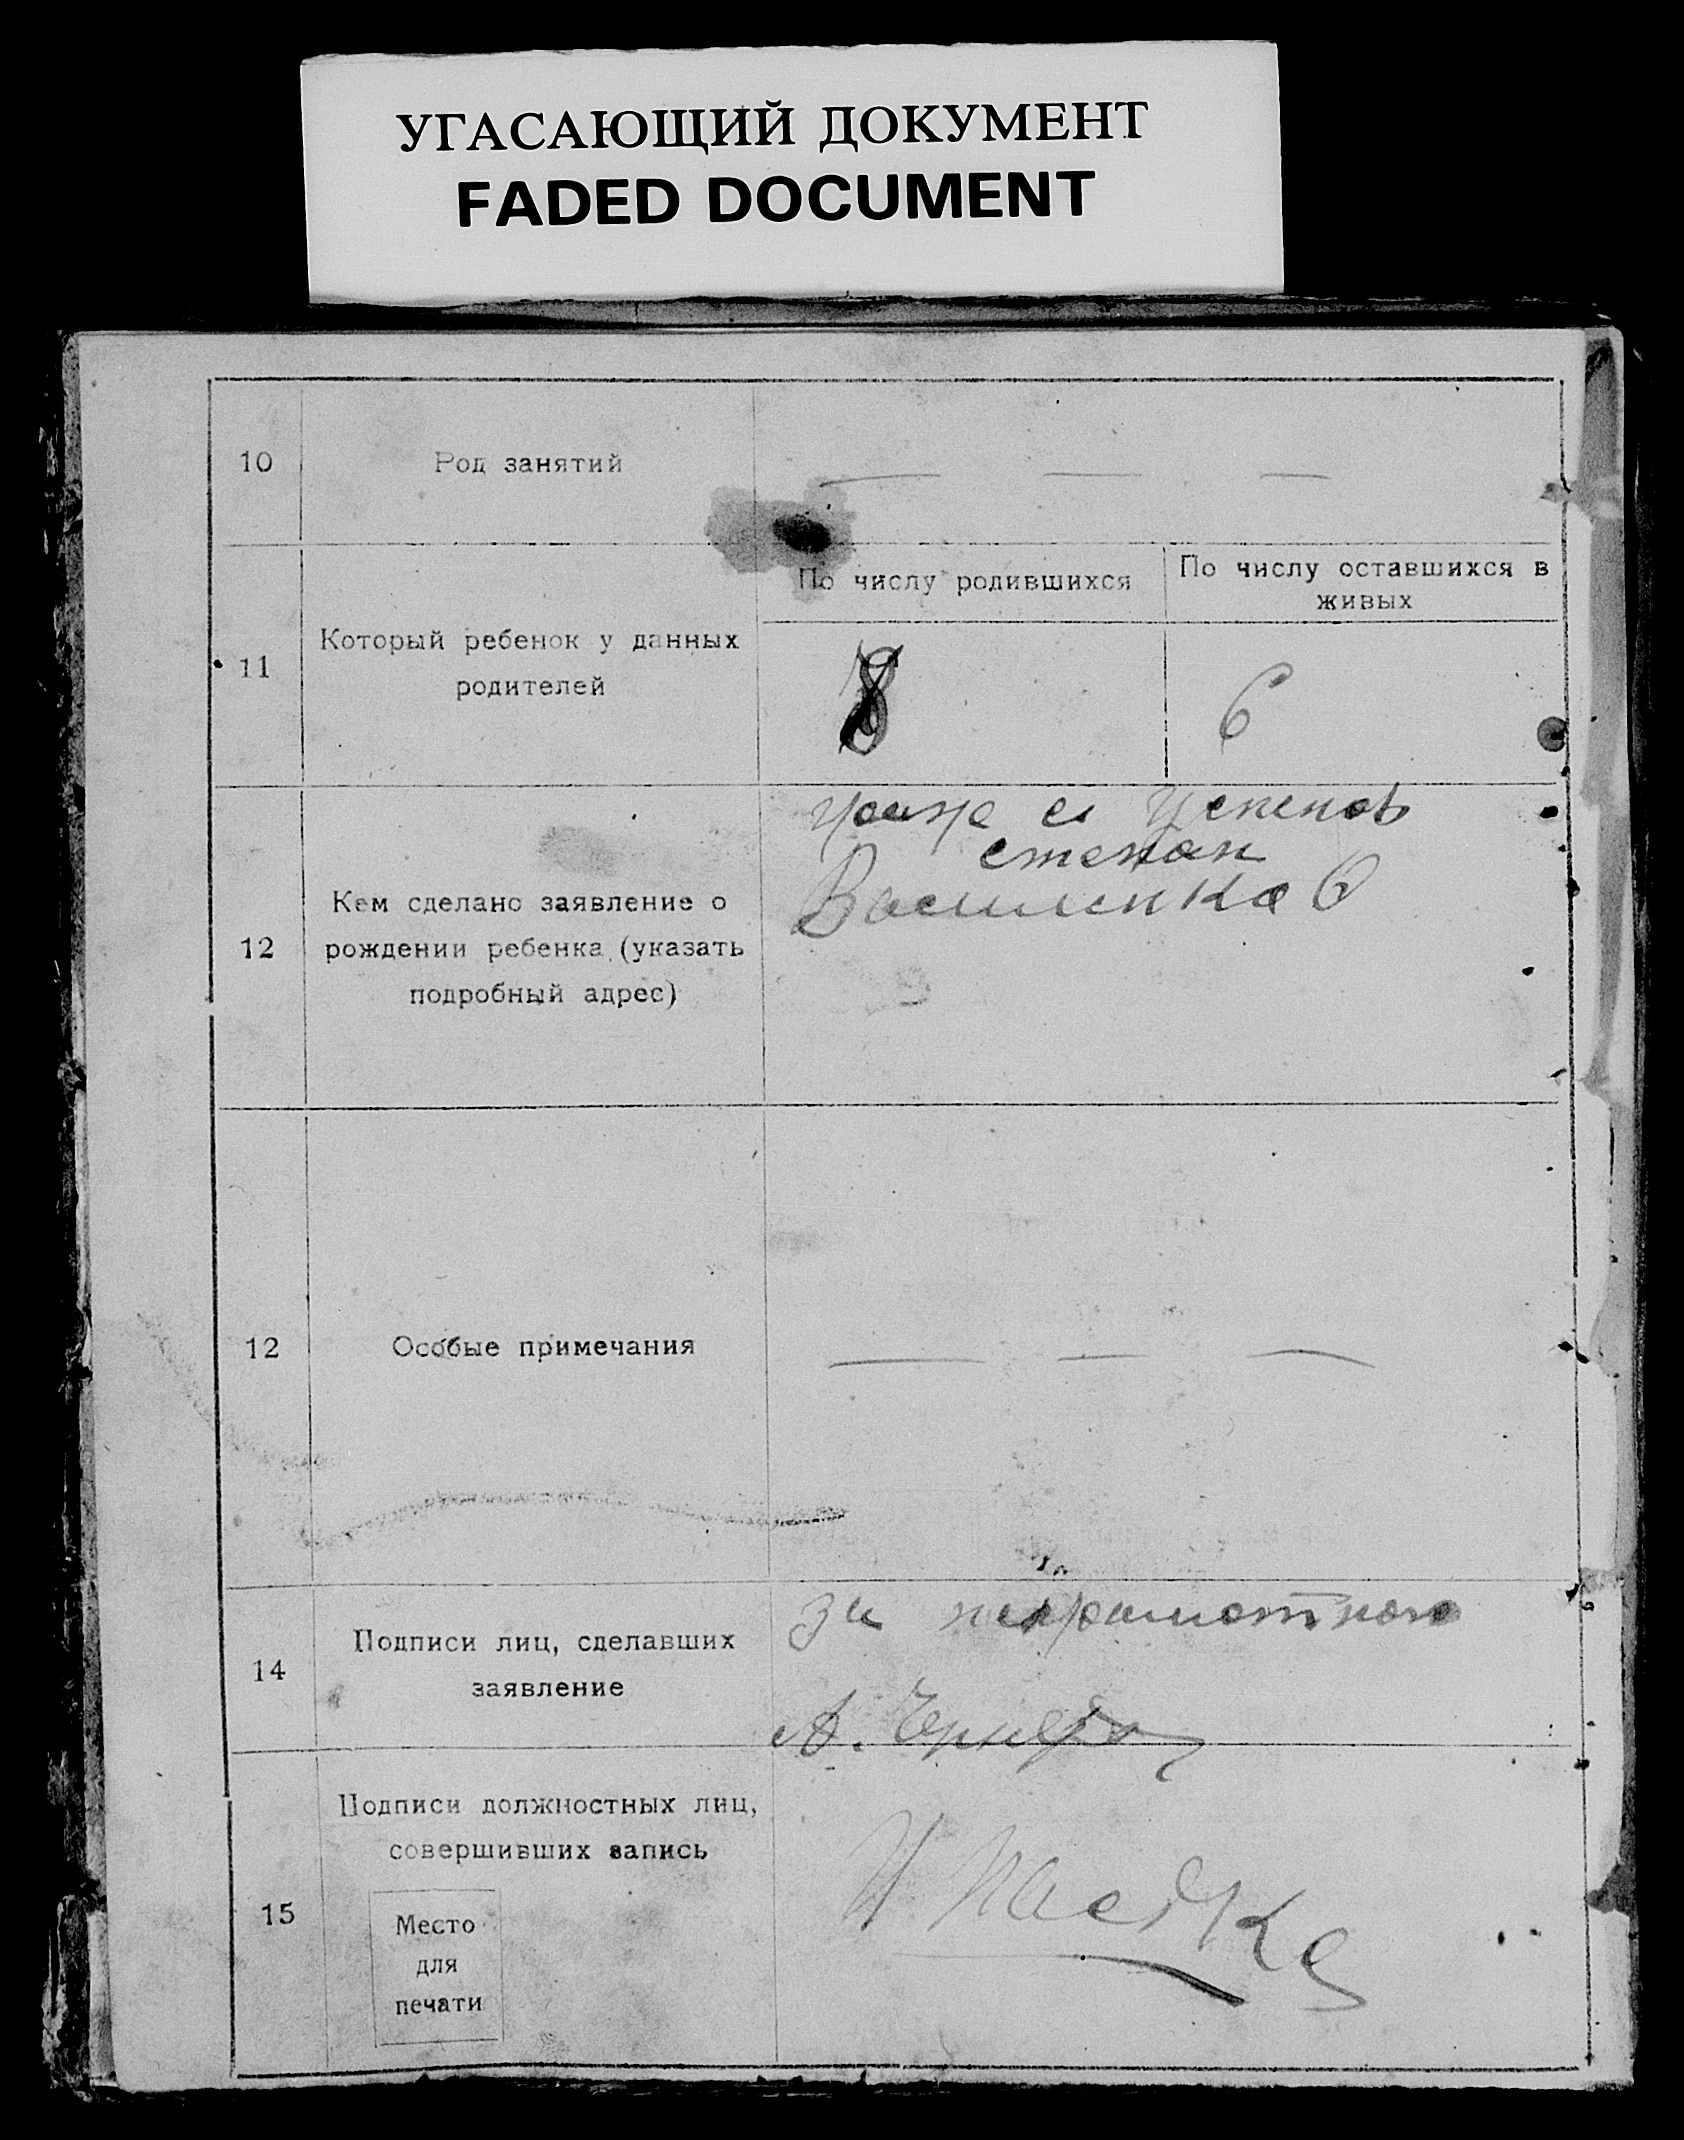 УГАСАЮЩИЙ ДОКУМЕНТ
FADED DOCUMENT
10
Род занятий
— — —
11
Который ребенок у данных
родителей
По числу родившихся
По числу оставшихся в
живых
8
6
12
Кем сделано заявление о
рождении ребенка (указать
подробный адрес)
степан
12
Особые примечания
— — —
14
Подписи лиц, сделавших
заявление
за неграмотного
А.
15
Подписи должностных лиц,
совершивших запись
Место
для
печати